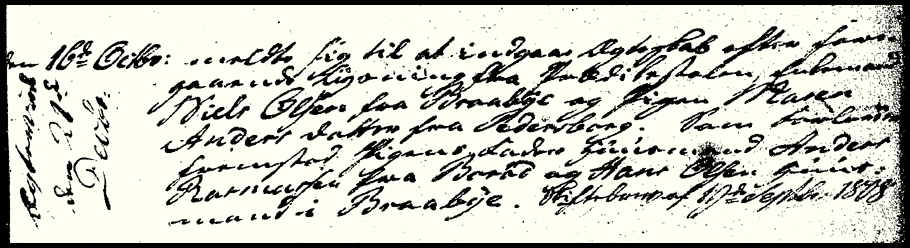 den 16de Octbr: meldte sig til at indgaae Ægteskab efter fore-
gaaende Lysning fra Prædikestolen, Enkemand
Niels Olsen fra Braabÿe og Pigen Maren
Anders datter fra Pedersborg. Som Forlovere
fremstod Pigens Fader Huusmand Anders
Rasmussen fra Borød og Hans Olsen Huus-
mand i Braabÿe. Skiftebrev af 17de Septbr. 1808
Copuleret
den 29de
Decbr: